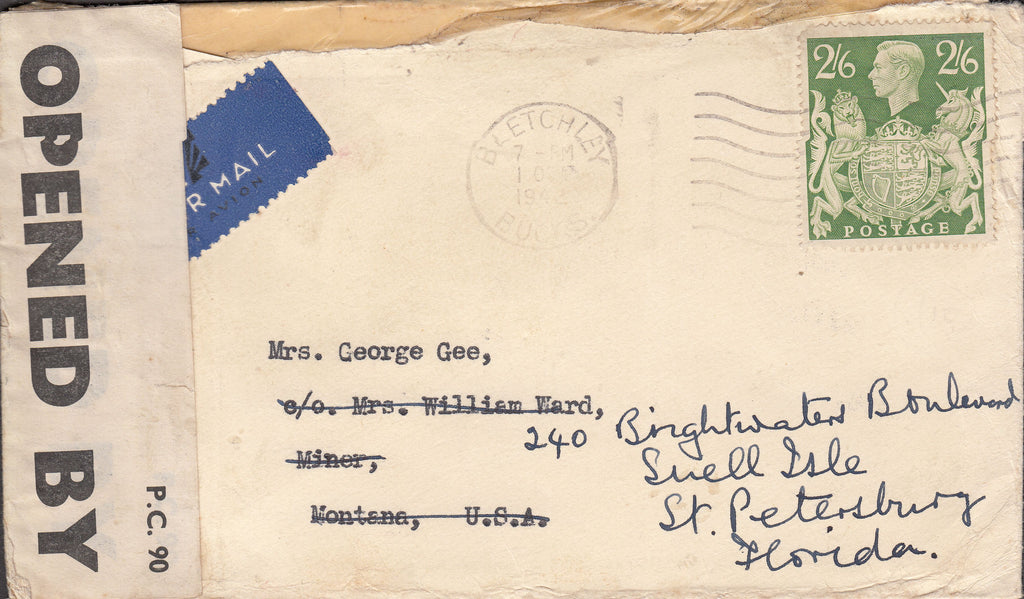 OPENED BY
P.C. 90
R MAIL
AVION
BLETCHLEY
7 - PM
1 OC
1942
BUCKS.
2/6 2/6
POSTAGE
Mrs. George Gee,
c/o. Mrs. William Ward,
Miner,
Montana, U.S.A.
240 Brightwaters Boulevard
Snell Isle
St. Petersburg
Florida.